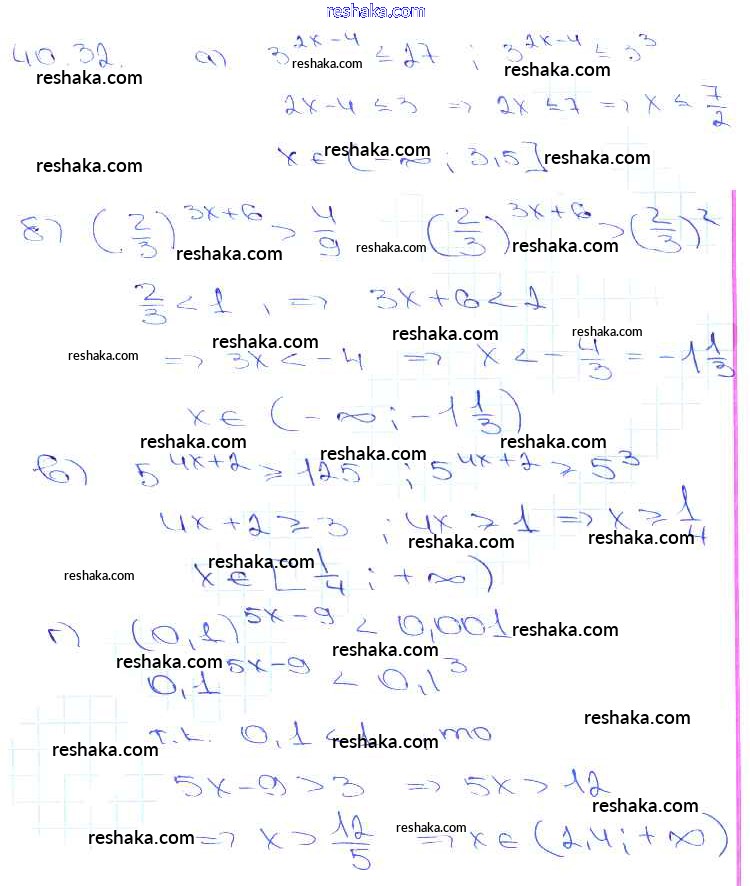 reshaka.com
40.32. а) 3^{2x-4} ≤ 27 ; 3^{2x-4} ≤ 3^3
reshaka.com reshaka.com reshaka.com
2x-4 ≤ 3 => 2x ≤ 7 => x ≤ 7/2
reshaka.com reshaka.com reshaka.com
x ∈ (-∞ ; 3,5]
б) (2/3)^{3x+6} > 4/9 (2/3)^{3x+6} > (2/3)^2
reshaka.com reshaka.com reshaka.com
2/3 < 1 , => 3x+6 < 2
reshaka.com reshaka.com reshaka.com reshaka.com
=> 3x < -4 => x < -4/3 = -1 1/3
x ∈ (-∞ ; -1 1/3)
reshaka.com reshaka.com reshaka.com
в) 5^{4x+2} ≥ 125 ; 5^{4x+2} ≥ 5^3
4x+2 ≥ 3 ; 4x ≥ 1 => x ≥ 1/4
reshaka.com reshaka.com reshaka.com reshaka.com
x ∈ [1/4 ; +∞)
г) (0,1)^{5x-9} < 0,001
reshaka.com reshaka.com reshaka.com reshaka.com
0,1^{5x-9} < 0,1^3
reshaka.com
т.к. 0,1 < 1 то
reshaka.com reshaka.com
5x-9 > 3 => 5x > 12
reshaka.com
=> x > 12/5 => x ∈ (2,4 ; +∞)
reshaka.com reshaka.com